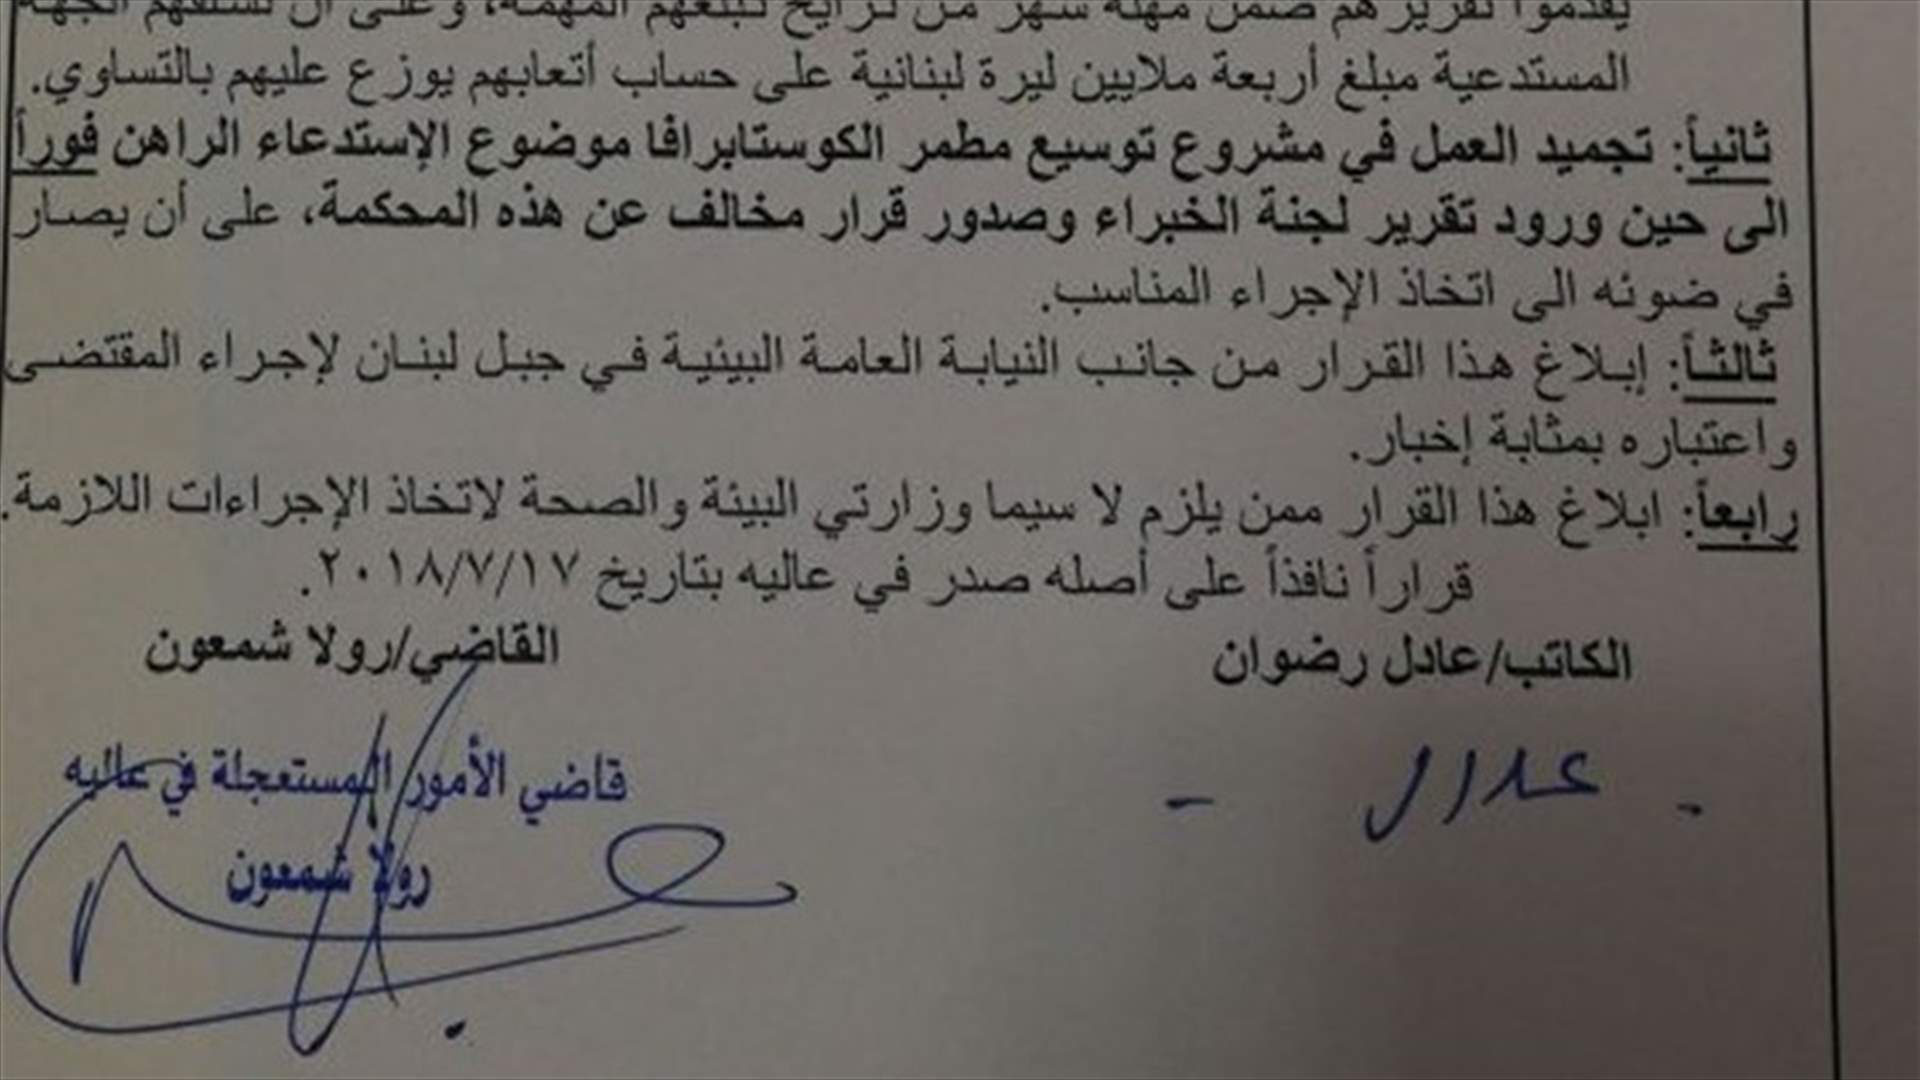 يقدموا تقريرهم ضمن مهلة شهر من تاريخ تبلغهم المهمة، وعلى أن تسلفهم الجهة
المستدعية مبلغ أربعة ملايين ليرة لبنانية على حساب أتعابهم يوزع عليهم بالتساوي.
ثانياً: تجميد العمل في مشروع توسيع مطمر الكوستابرافا موضوع الإستدعاء الراهن فوراً
الى حين ورود تقرير لجنة الخبراء وصدور قرار مخالف عن هذه المحكمة، على أن يصار
في ضوئه الى اتخاذ الإجراء المناسب.
ثالثاً: إبلاغ هذا القرار من جانب النيابة العامة البيئية في جبل لبنان لإجراء المقتضى
واعتباره بمثابة إخبار.
رابعاً: ابلاغ هذا القرار ممن يلزم لا سيما وزارتي البيئة والصحة لاتخاذ الإجراءات اللازمة.
قراراً نافذاً على أصله صدر في عاليه بتاريخ ٢٠١٨/٧/١٧.
الكاتب/عادل رضوان
القاضي/رولا شمعون
قاضي الأمور المستعجلة في عاليه
رولا شمعون